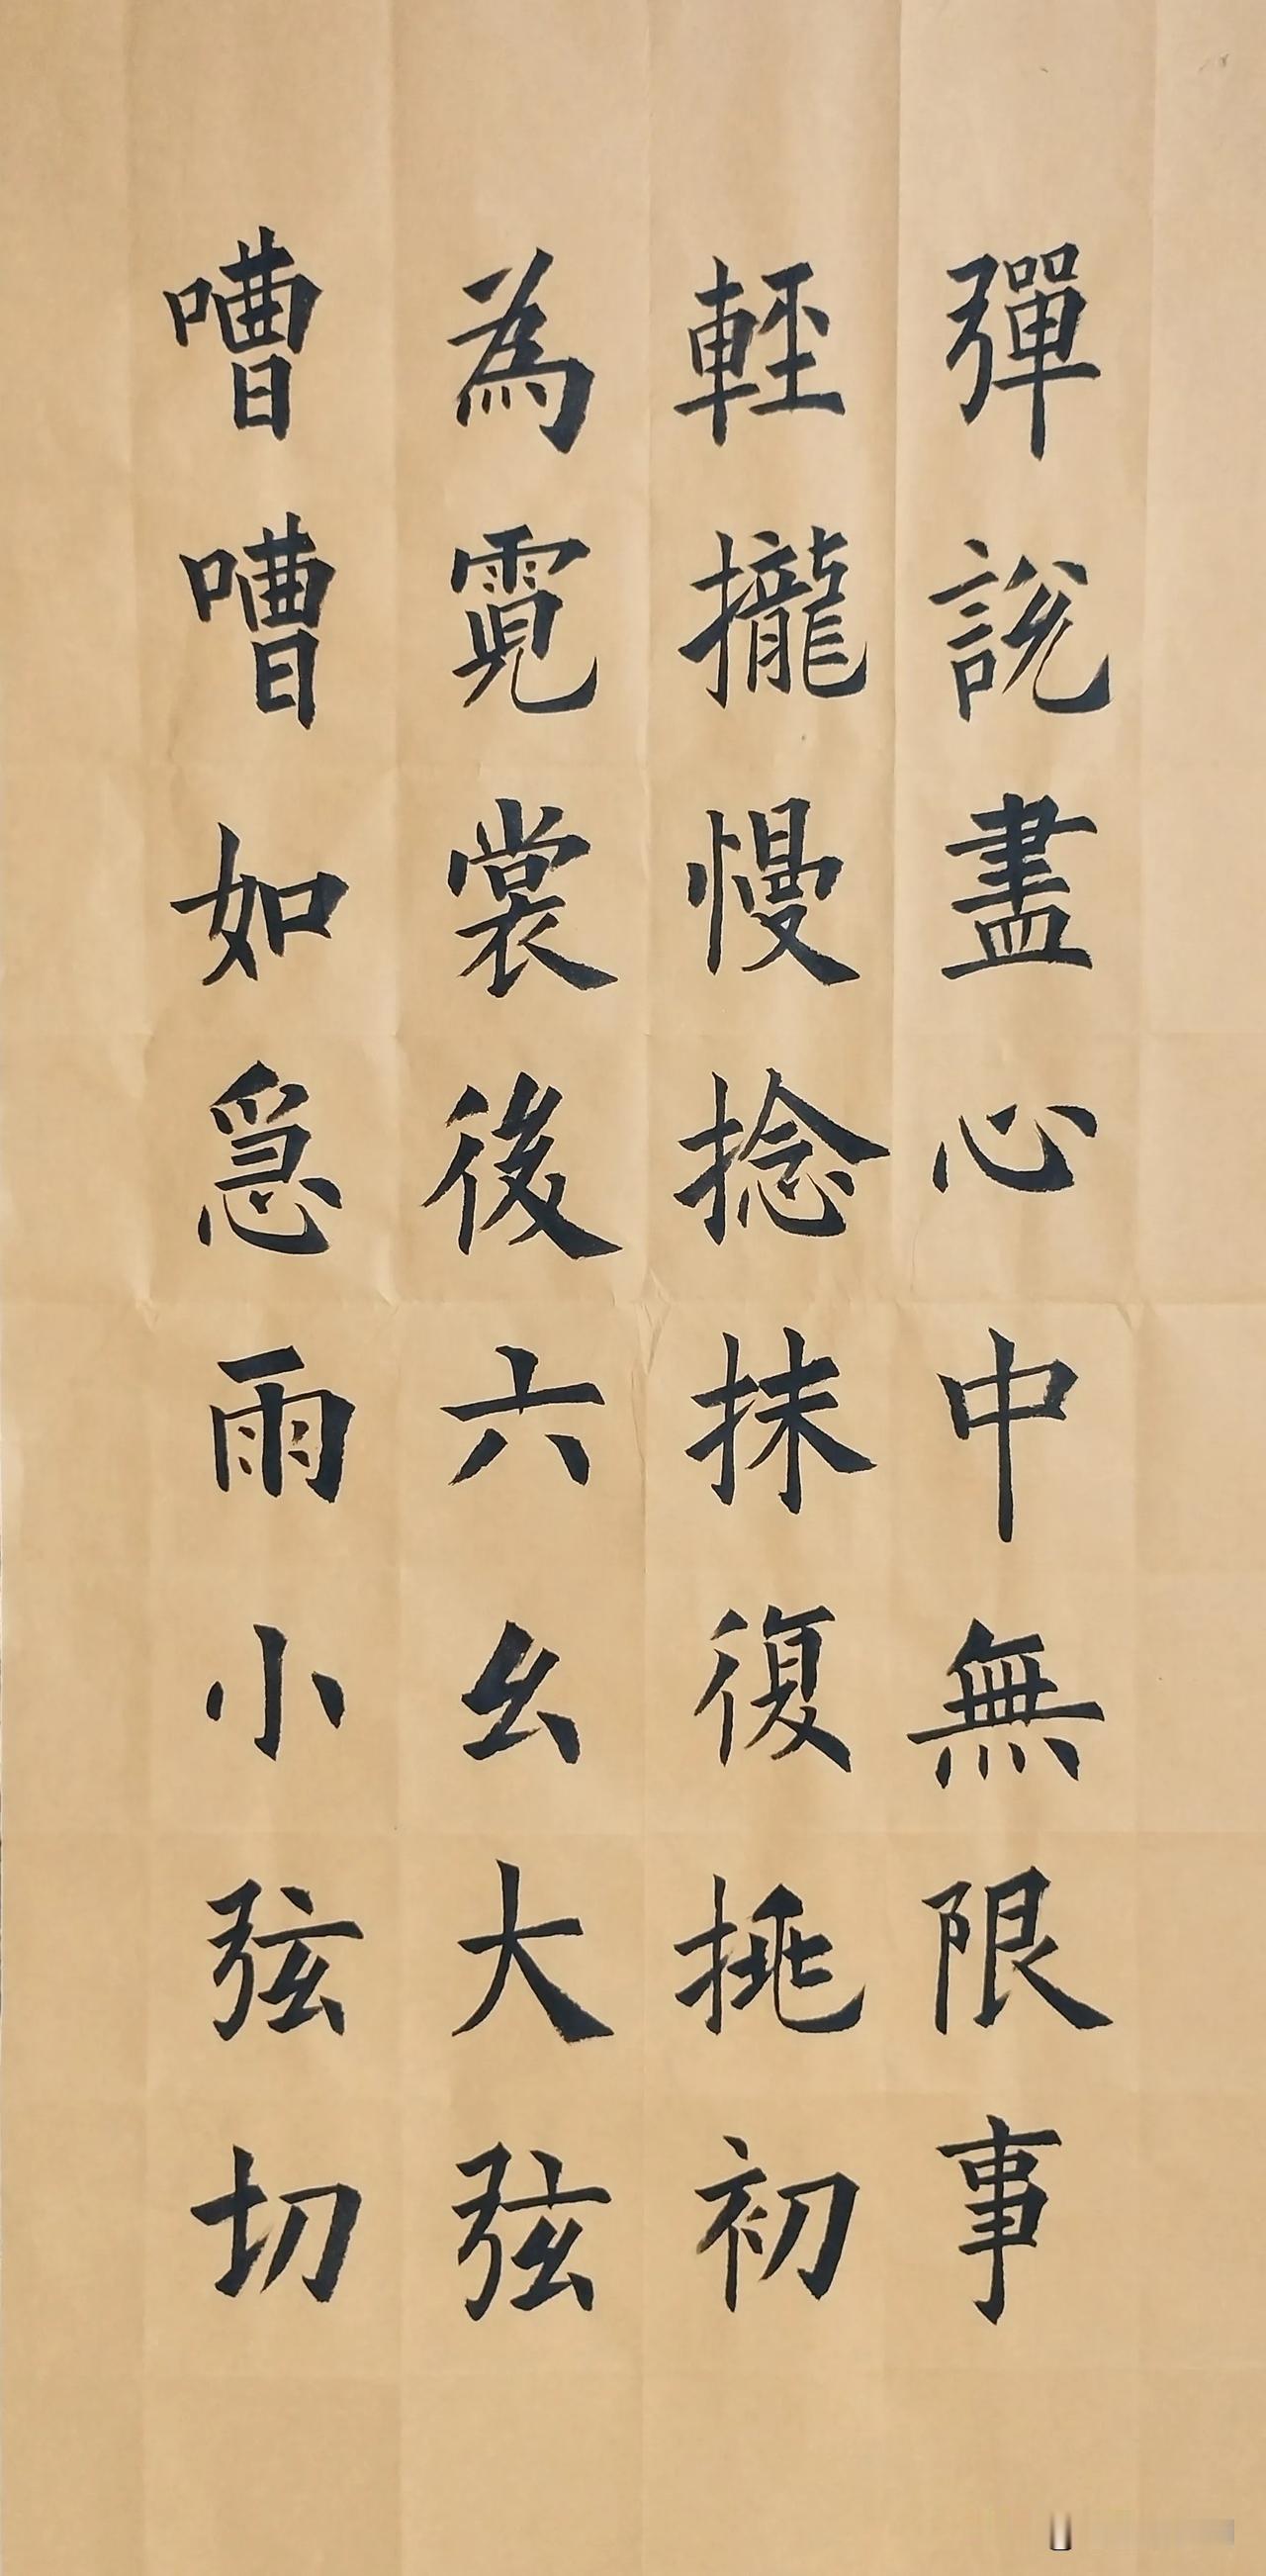 彈說盡心中無限事
輕攏慢捻抹復挑初
為霓裳後六幺大弦
嘈嘈如急雨小弦切